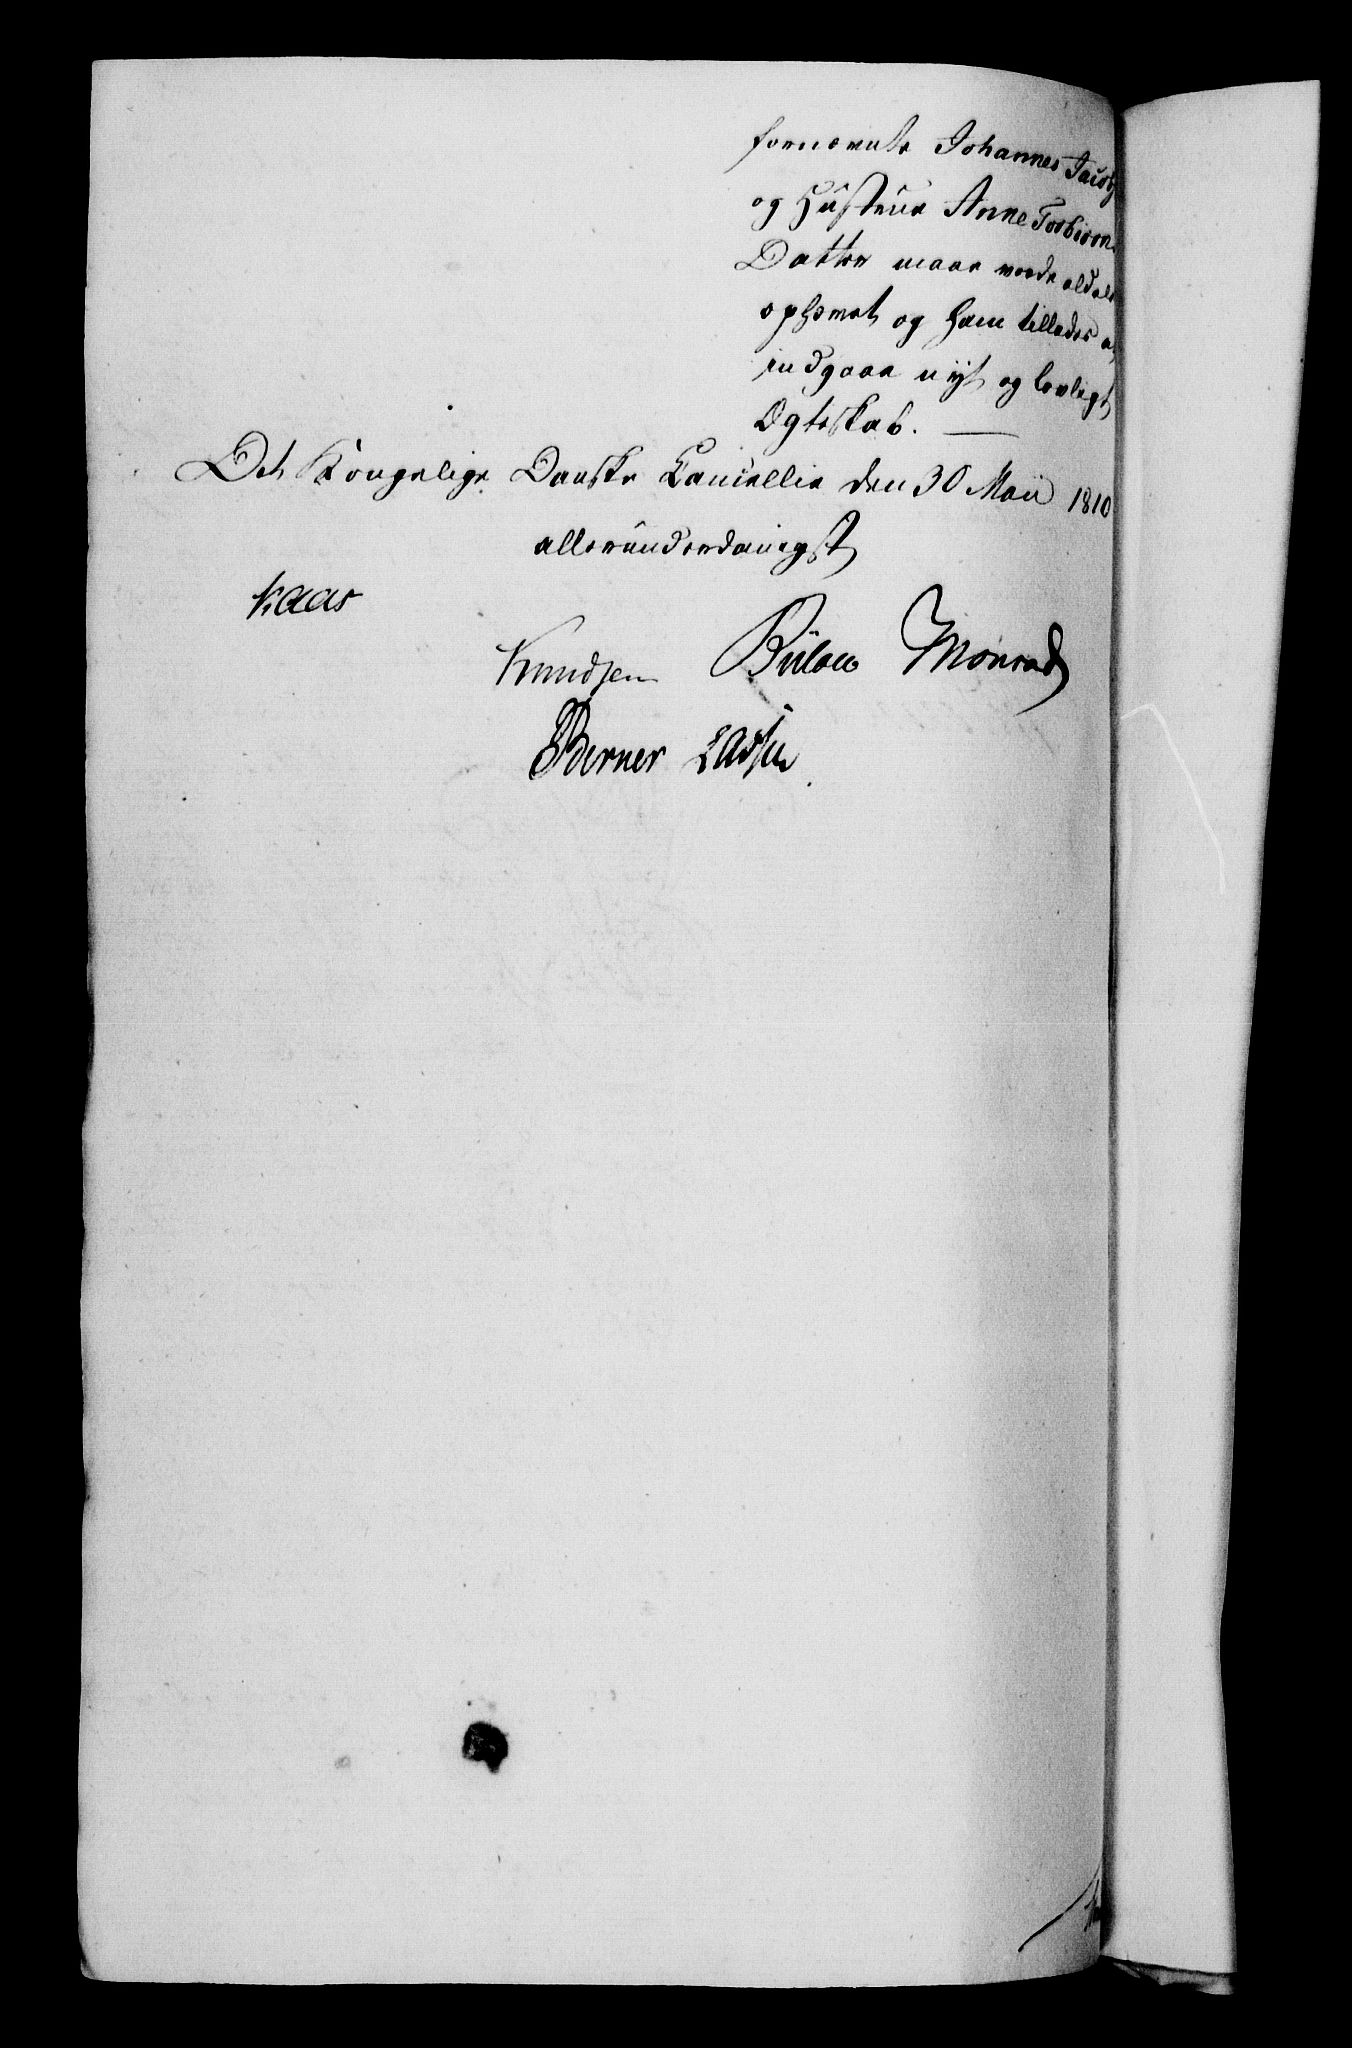 fornevnte Johannes Jacobs
og Hustrue Anne Torbiørns
Datter maae vorde aldeles
ophævet og ham tillades at
indgaae nÿt og lovligt
Ægteskab. —
Det Kongelige Danske Cancellie den 30 Maii 1810
allerunderdanigst
Kaas
Knudsen Bülow Monrad
Berner Lassen